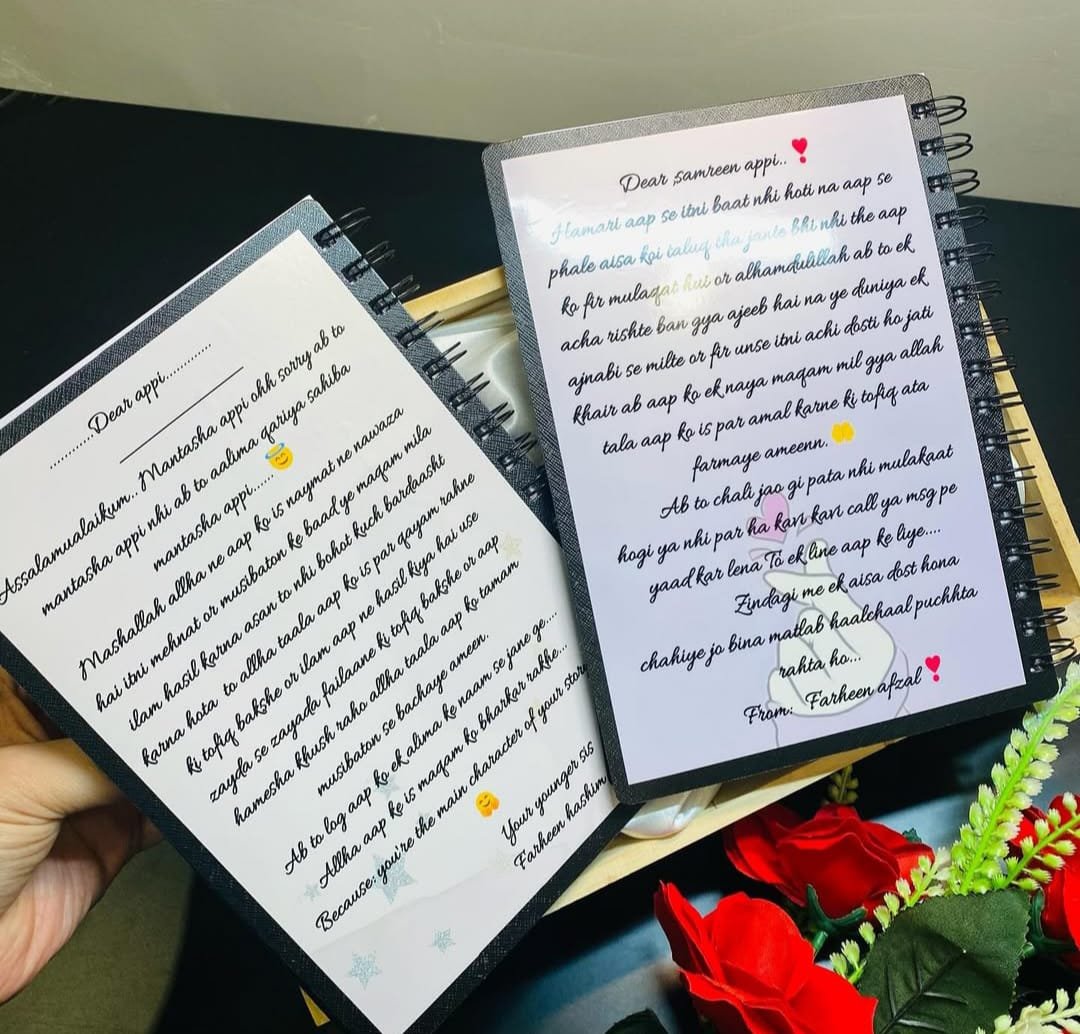 ..........Dear appi............
Assalamualaikum.. Mantasha appi ohh sorry ab to
mantasha appi nhi ab to aalima qariya sahiba
mantasha appi...... 😇
Mashallah allha ne aap ko is naymat ne nawaza
hai itni mehnat or musibaton ke baad ye maqam mila
ilam hasil karna asan to nhi bohot kuch bardaasht
karna hota to allha taala aap ko is par qayam rahne
ki tofiq bakshe or ilam aap ne hasil kiya hai use
zayda se zayada failaane ki tofiq bakshe or aap
hamesha khush raho allha taala aap ko tamam
musibaton se bachaye ameen.
Ab to log aap ko ek alima ke naam se jane ge....
Allha aap ke is maqam ko bharkar rakhe...
Because: you're the main character of your story
🤗
Your younger sis
Farheen hashim
Dear samreen appi.. ❣
Hamari aap se itni baat nhi hoti na aap se
phale aisa koi taluq tha jante bhi nhi the aap
ko fir mulaqat hui or alhamdulillah ab to ek
acha rishte ban gya ajeeb hai na ye duniya ek
ajnabi se milte or fir unse itni achi dosti ho jati
khair ab aap ko ek naya maqam mil gya allah
tala aap ko is par amal karne ki tofiq ata
farmaye ameenn. 🤲
Ab to chali jao gi pata nhi mulakaat
hogi ya nhi par ha kavi kavi call ya msg pe
yaad kar lena To ek line aap ke liye....
Zindagi me ek aisa dost hona
chahiye jo bina matlab haalchaal puchhta
rahta ho...
From: Farheen afzal ❣